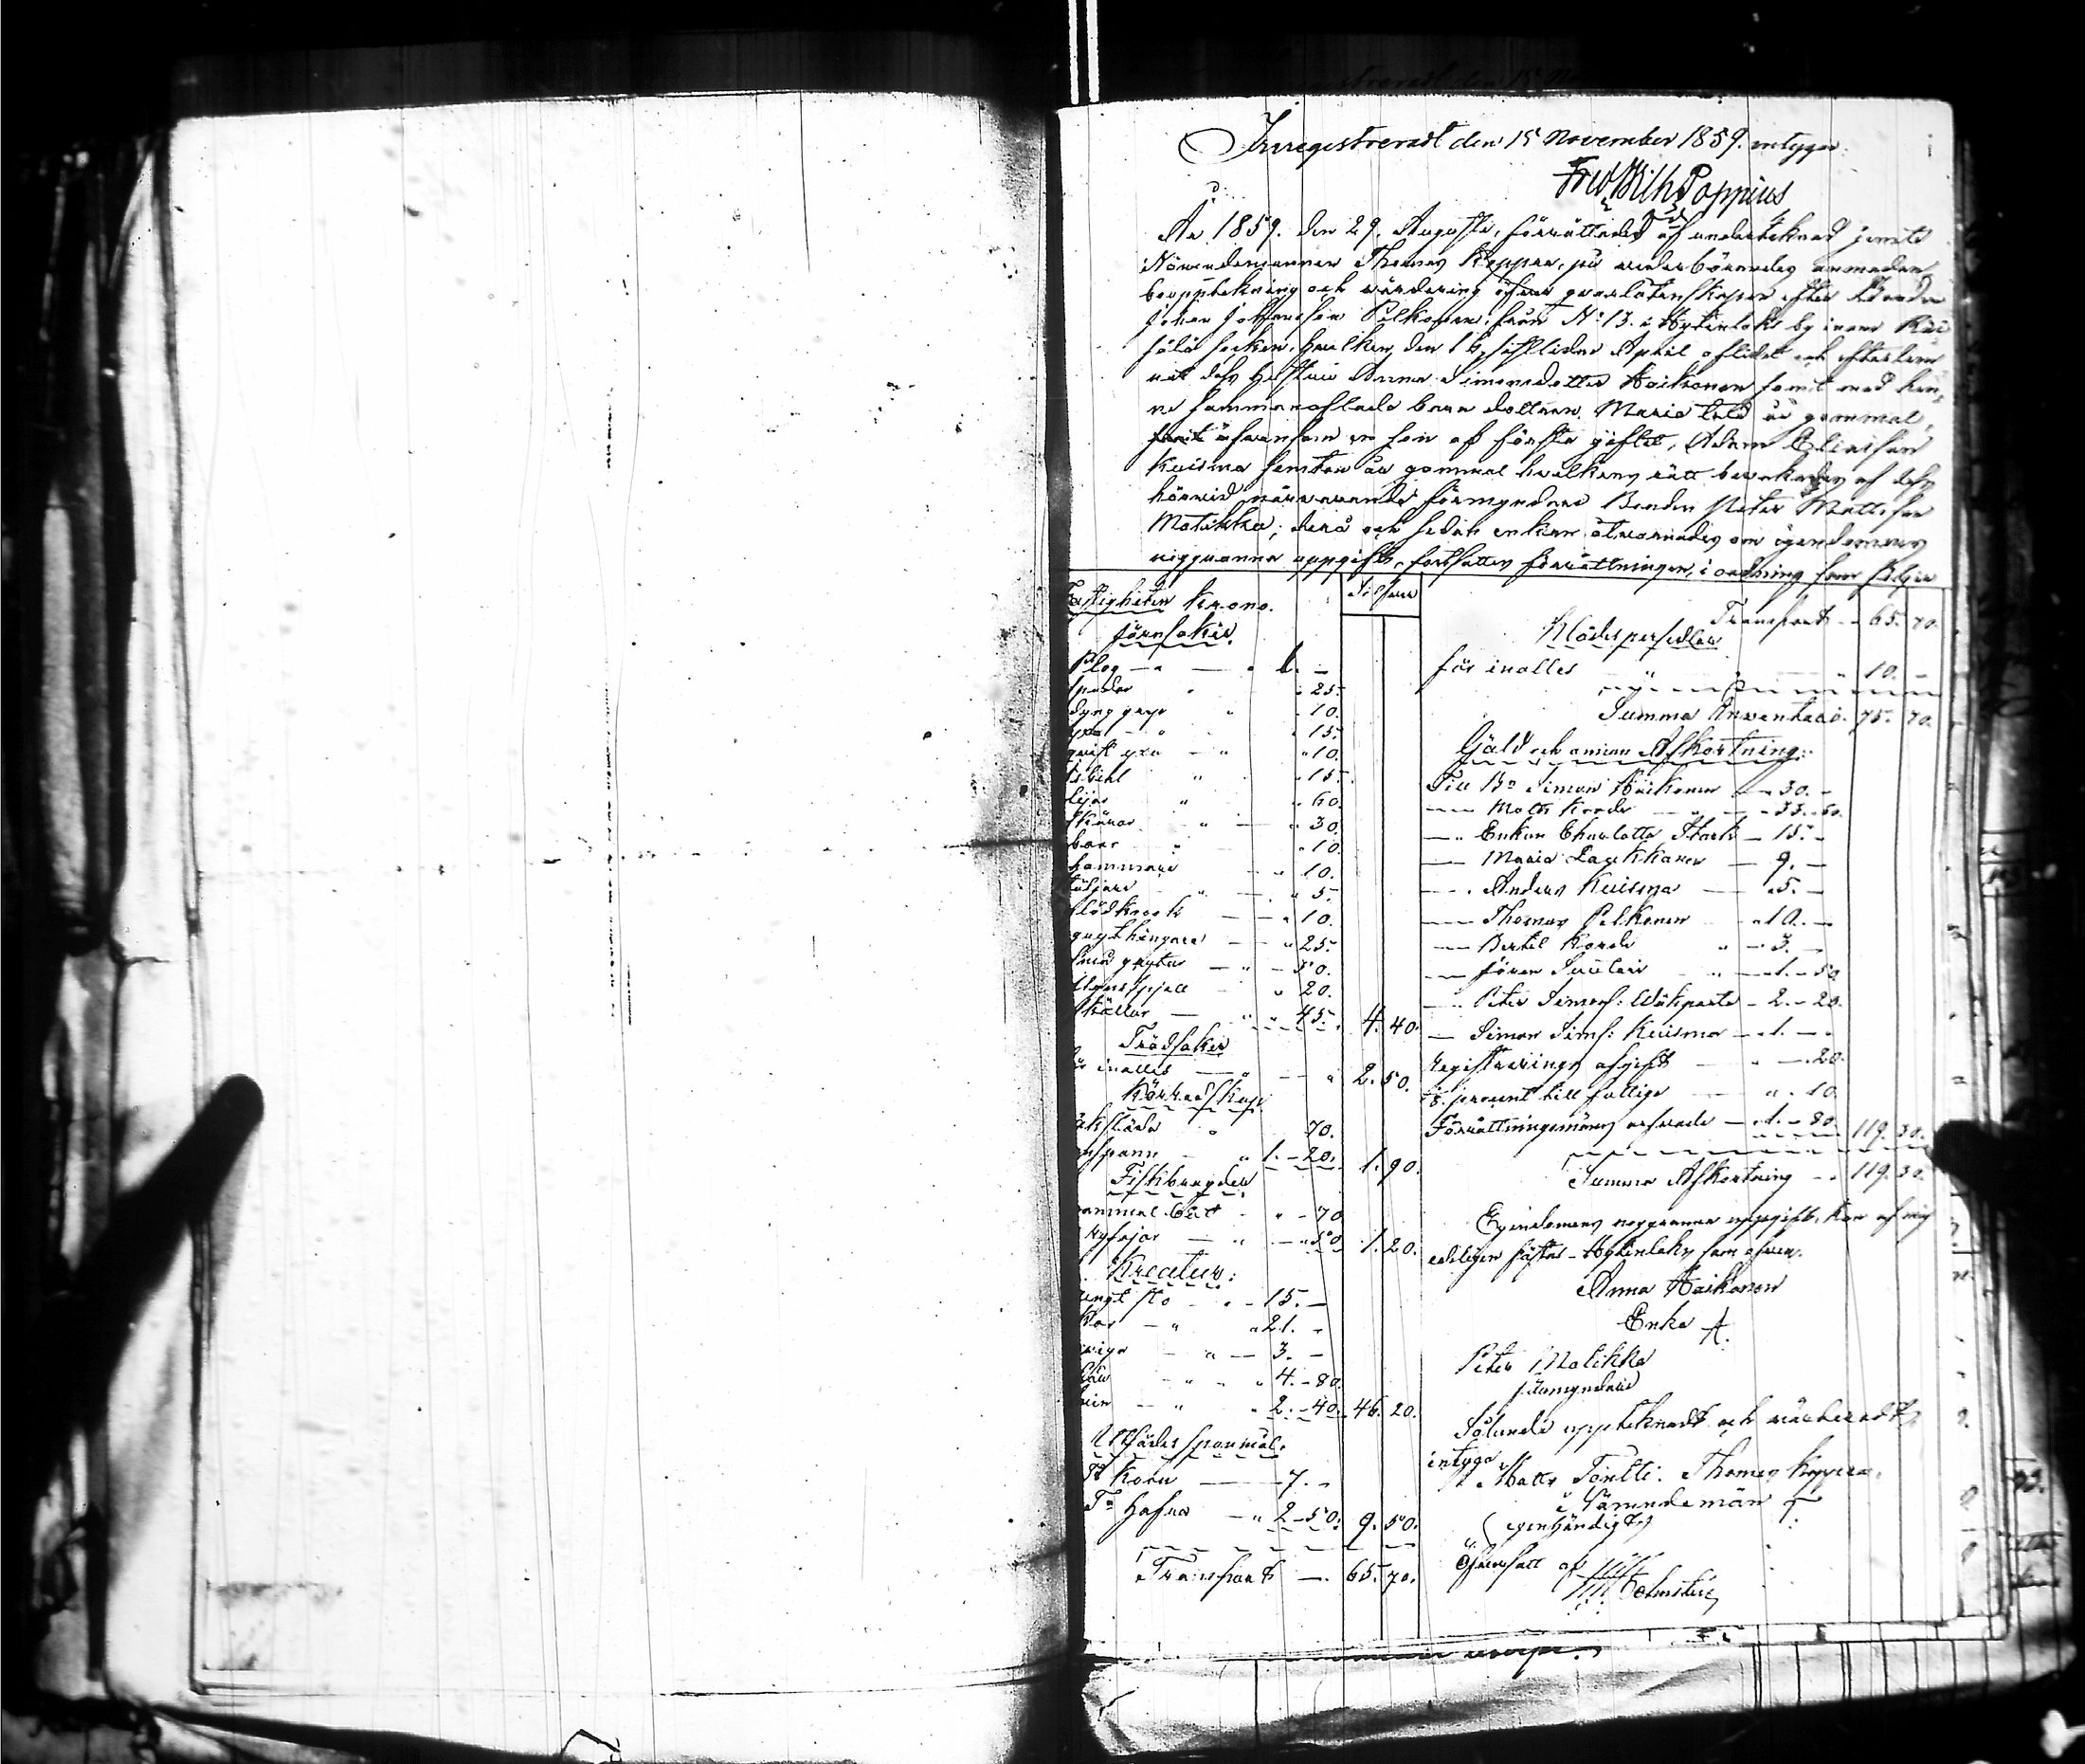 Inregistreradt den 15 November 1859. intygar
Fred Wilh Poppius
År 1859. den 29. Augusti, förrättades af undertecknad jemte
Nämndemannen Thomas Koppra, på vederbörandes anmodan
boupptekning och värdering öfver qvarlåtenskapen efter Bonden
Johan Johansson Pelkonen, från No 13. i Hytinlaks by inom
socken, hvilken den sistlidne April aflidit och efterlem
nat dess hustru Anna Simonsdotter Haikonen samt med hen
ne sammanaflade barn dottren Maria år gammal,
äfvensom en son af första giftet, Adam Eliasson
Kuisma femton år gammal hvilkens rätt bevakades af dess
härvid närvarande förmyndare Bonden Peter Mattsson
Matikka; derå och sedan enkan åtvarnades om egendomens
noggranna uppgift, fortsattes förrättningen, i ordning som följer
Fastigheten krono.
Silfver
Jernsaker
Plog 1. -
spadar 25.
dyng grep 10.
yxa 15.
qvist yxa 10.
isbihl 15.
lijar 60.
skäror 30.
borr 10.
hammare 10.
täljare 5.
glödkrok 10.
gryt hängare 25.
små grytor 50.
ugnsspjell 20.
skällor 45. 4. 40.
Trädsaker
för inalles 2. 50.
Körredskap
åksläda 70.
anspann 1. - 20. 1. 90.
Fiskbragder
gammal båt 70
ryssjor 50 1. 20.
Kreatur:
ungt sto 15. -
Kor 21. -
qviga 3. -
får 4. - 80.
svin 2. - 40. 46. 20.
Utsädes spanmål.
Tr Korn 7. -
Tr hafra 2 - 50. 9. 50.
Transport 65. 70.
Transport 65. 70.
Klädespersedlar
för inalles 10. -
Summa Inventarii 75. 70.
Gäld och annan Afkortning:
Till Bn Simon Haikonen 30. -
Matts Korde 33. - 50.
Enkan Charlotta Stark 15. -
Maria Laukkanen 9. -
Anders Kuisma 5. -
Thomas Pelkonen 10. -
Bertil Korde 3. -
Jöran 1. - 50
Peter Simonss: Wäkparta 2. - 20.
Simon Sims: Kuisma 1. -
Registrerings afgift 20.
procent till fattige 10
Förrättningsmäns arfvode 1. - 80. 119. 30.
Summa Afkortning 119. 30.
Egendomens noggranna uppgift, kan af mig
edeligen fästas - Hytinlaks som ofvan.
Anna Haikonen
Enka
Peter Matikka
förmyndare
Sålunde uppteknadt och värderadt,
intyga
Matts Tontti. Thomas Koppra.
Nämndemän
(egenhändigt)
Öfversatt af